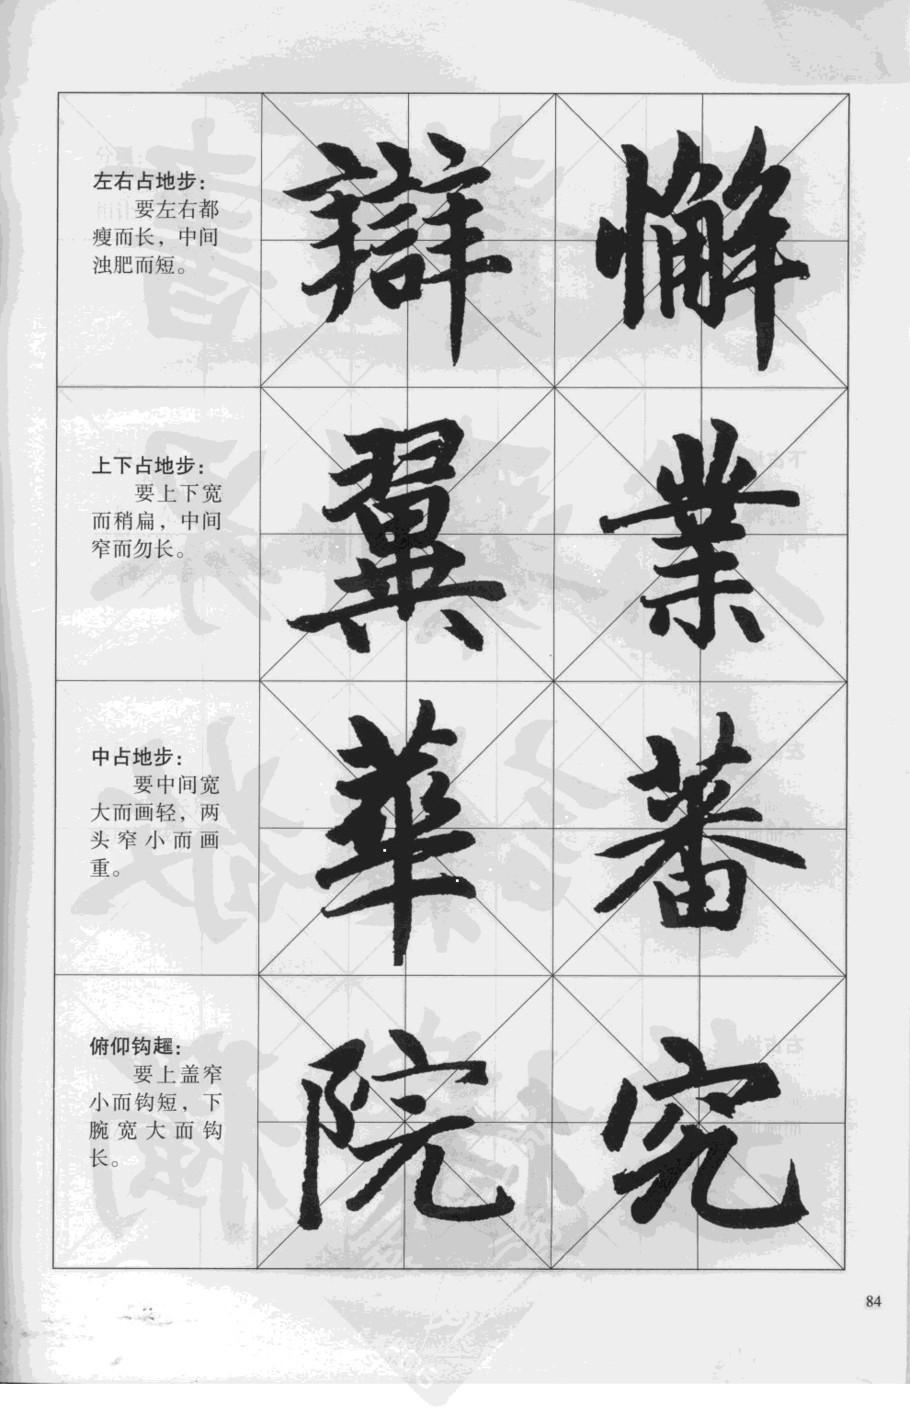 左右占地步：
要左右都
瘦而长，中间
浊肥而短。
辯 懈
上下占地步：
要上下宽
而稍扁，中间
窄而勿长。
翼 業
中占地步：
要中间宽
大而画轻，两
头窄小而画
重。
華 蕃
俯仰钩趯：
要上盖窄
小而钩短，下
腕宽大而钩
长。
院 究
84